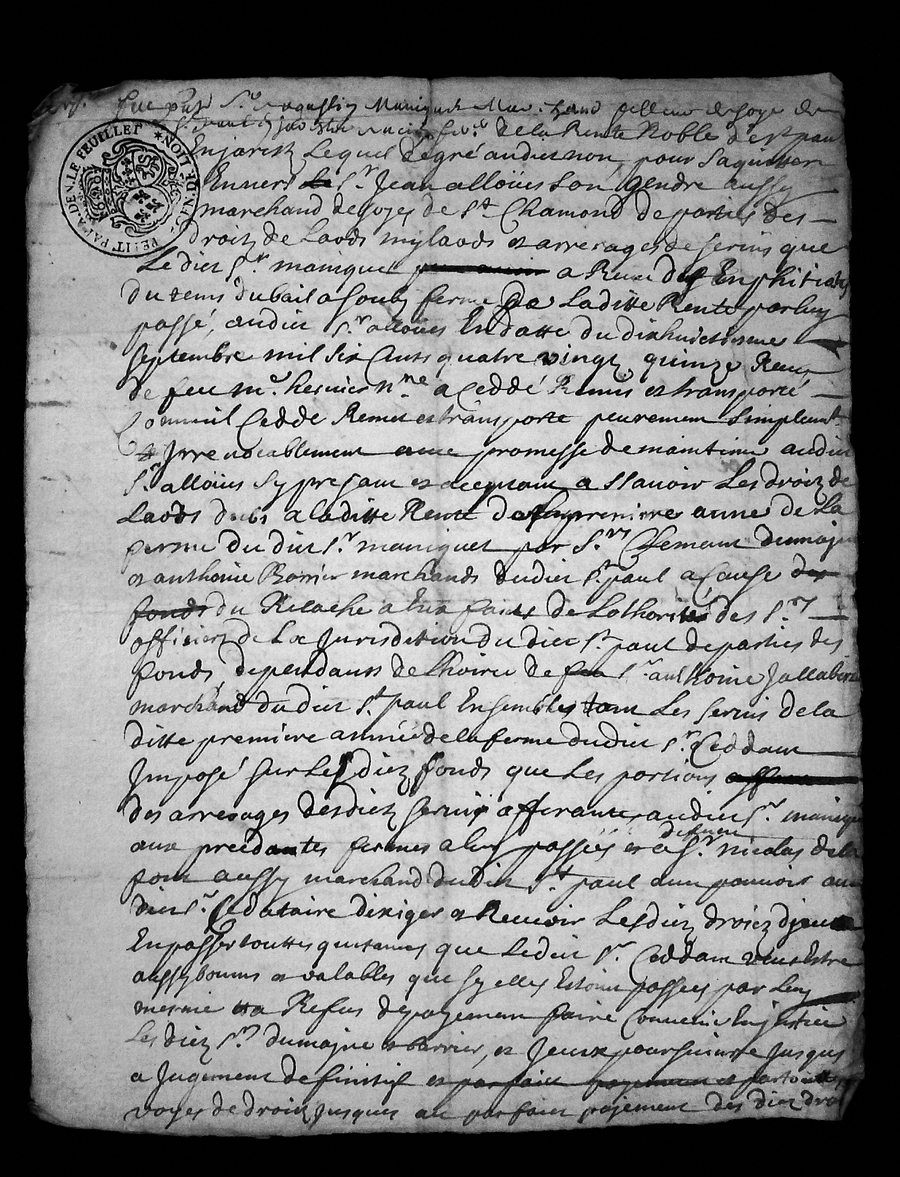 Fut pnt Sr Augustin Maniquet Marchand filleur de soye de
St paul de la Rente Noble de St paul
En jarest Lequel de gré au dict nom, pour Saquitter
Envers Le Sr Jean alloües son gendre aussy
marchand de soyes de St Chamond de parties des
droits de Laods mylaods et arrerages de servis que
Le dict Sr maniquet a Remis des Emphiteotes
du tems du bail a soub ferme de Laditte Rente par luy
passé, audict Sr alloües En datte du dixhuictiesme
septembre mil six Cents quatre vingt quinze Receu
de feu me nre a Ceddé Remis et transporté
Comme il Cedde Remet et transporte purement simplement
& Irrevocablement avec promesse de maintenir audict
Sr alloües Sy present et acceptant a sçavoir Les droits de
Laods dubs a laditte Rente premiere année de La
ferme du dict Sr maniquet par Srs Clemant dumajne
et anthoine Barrier marchands dudict St paul a Cause des
fonds du Relache a Eux faict de Lothorité des Srs
officiers de La Jurisdiction du dict St paul de parties des
fonds dependants de Lhoirie de feu Sr anthoine Jallabert
marchand du dict St paul Ensembles tant Les servis de la
ditte premiere année de la ferme dudict Sr Ceddant
Imposé sur Les dictz fonds que Les portions
des arrerages desdictz servis afferantes audict Sr maniquet
aux precedantes fermes a luy passées et a deffunt Sr nicolas dela
font aussy marchand du dict St paul avec pouvoir au
dict Sr Cedataire dexiger et Recevoir Lesdictz droictz d'jceux
En passer touttes quitances que Ledict Sr Ceddant veut Estre
aussy bonnes et valables que sy elles Estoint passées par Luy
mesme Refus de payement faire Convenir En justice
Les dictz Srs dumajne et barrier, et Jceux poursuivre jusques
a Jugement definitif et par touttes
voyes de droit jusques au parfaict payement des dictz droits